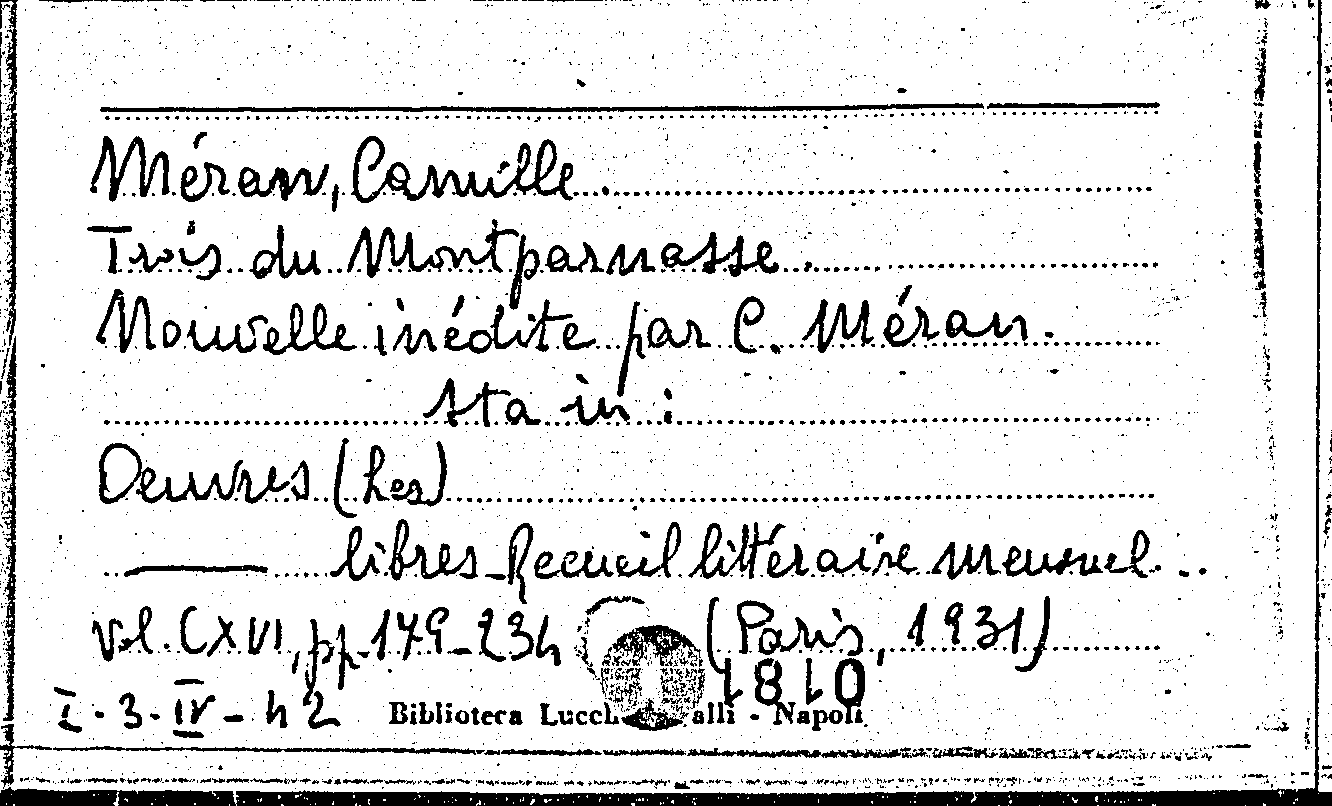 Méran, Camille.
Trois du Montparnasse.
Nouvelle inédite par C. Méran.
sta in:
Oeuvres (Les)
——— libres_Recueil littéraire mensuel...
Vol. CXVI, pp. 179-234 (Paris, 1931)
01810
I.3.IV-42 Biblioteca Lucch alli - Napoli